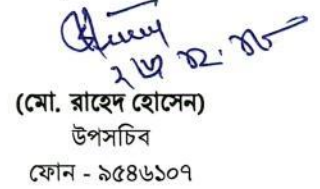 (মো. রাহেদ হোসেন)
উপসচিব
ফোন - ৯৫৪৬১০৭